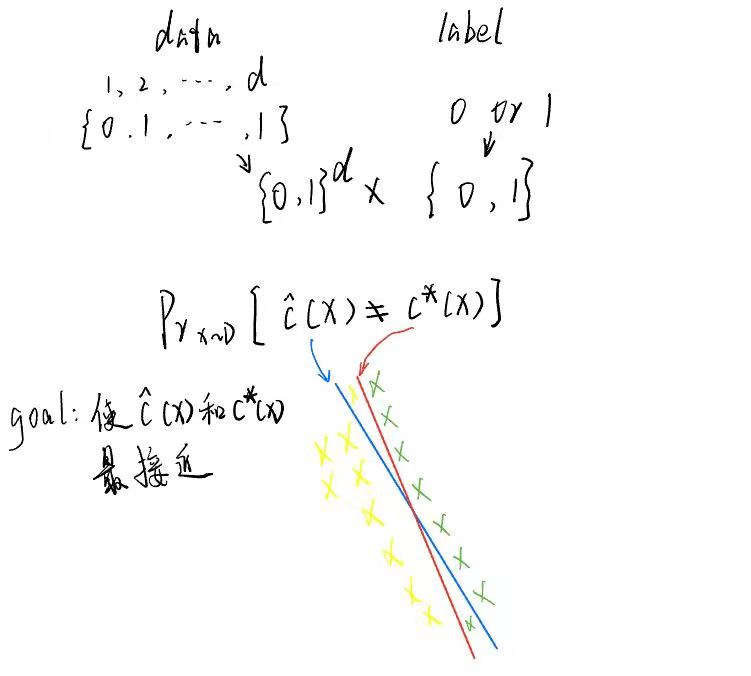 data label
1, 2, ..., d
{0.1, ..., ,1} 0 or 1
{0,1}^d × {0,1}
Pr x~D [ĉ(x) ≠ c*(x)]
goal: 使 ĉ(x) 和 c*(x)
最接近